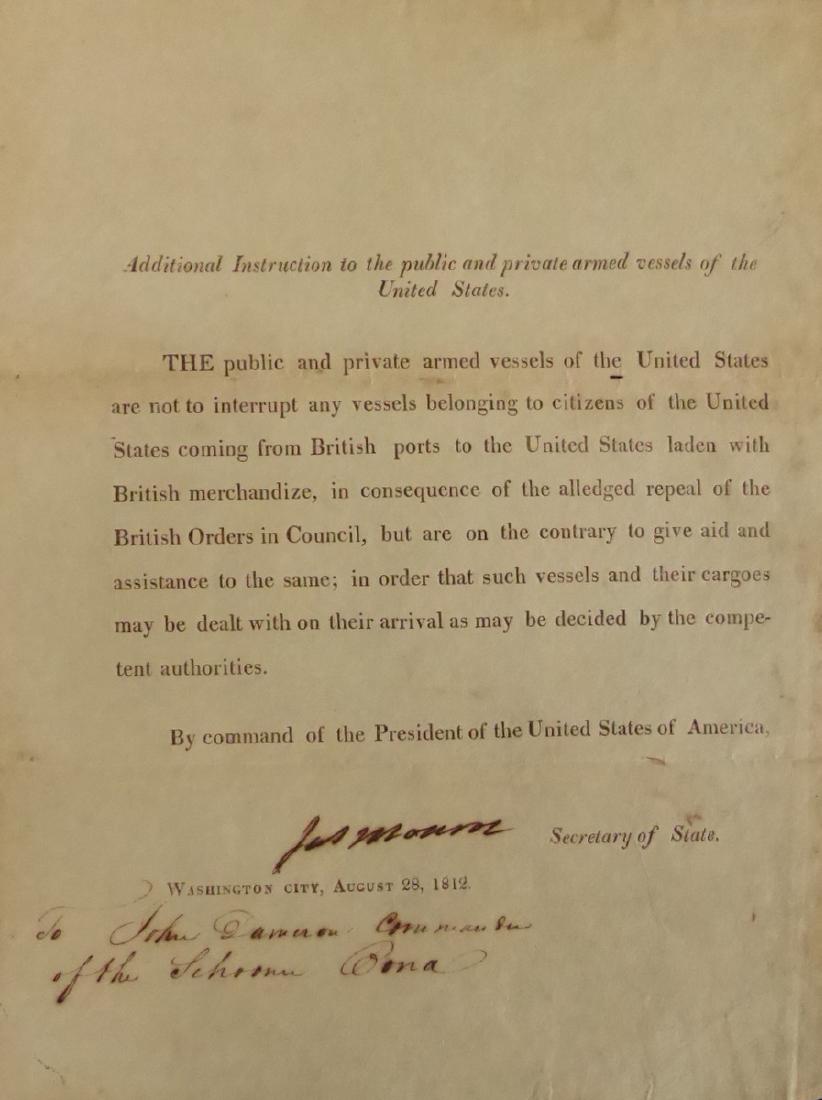 Additional Instruction to the public and private armed vessels of the
United States.
THE public and private armed vessels of the United States
are not to interrupt any vessels belonging to citizens of the United
States coming from British ports to the United States laden with
British merchandize, in consequence of the alledged repeal of the
British Orders in Council, but are on the contrary to give aid and
assistance to the same; in order that such vessels and their cargoes
may be dealt with on their arrival as may be decided by the compe-
tent authorities.
By command of the President of the United States of America,
Jas Monroe Secretary of State.
WASHINGTON CITY, AUGUST 28, 1812.
To John Dameron Commander
of the Schooner Bona